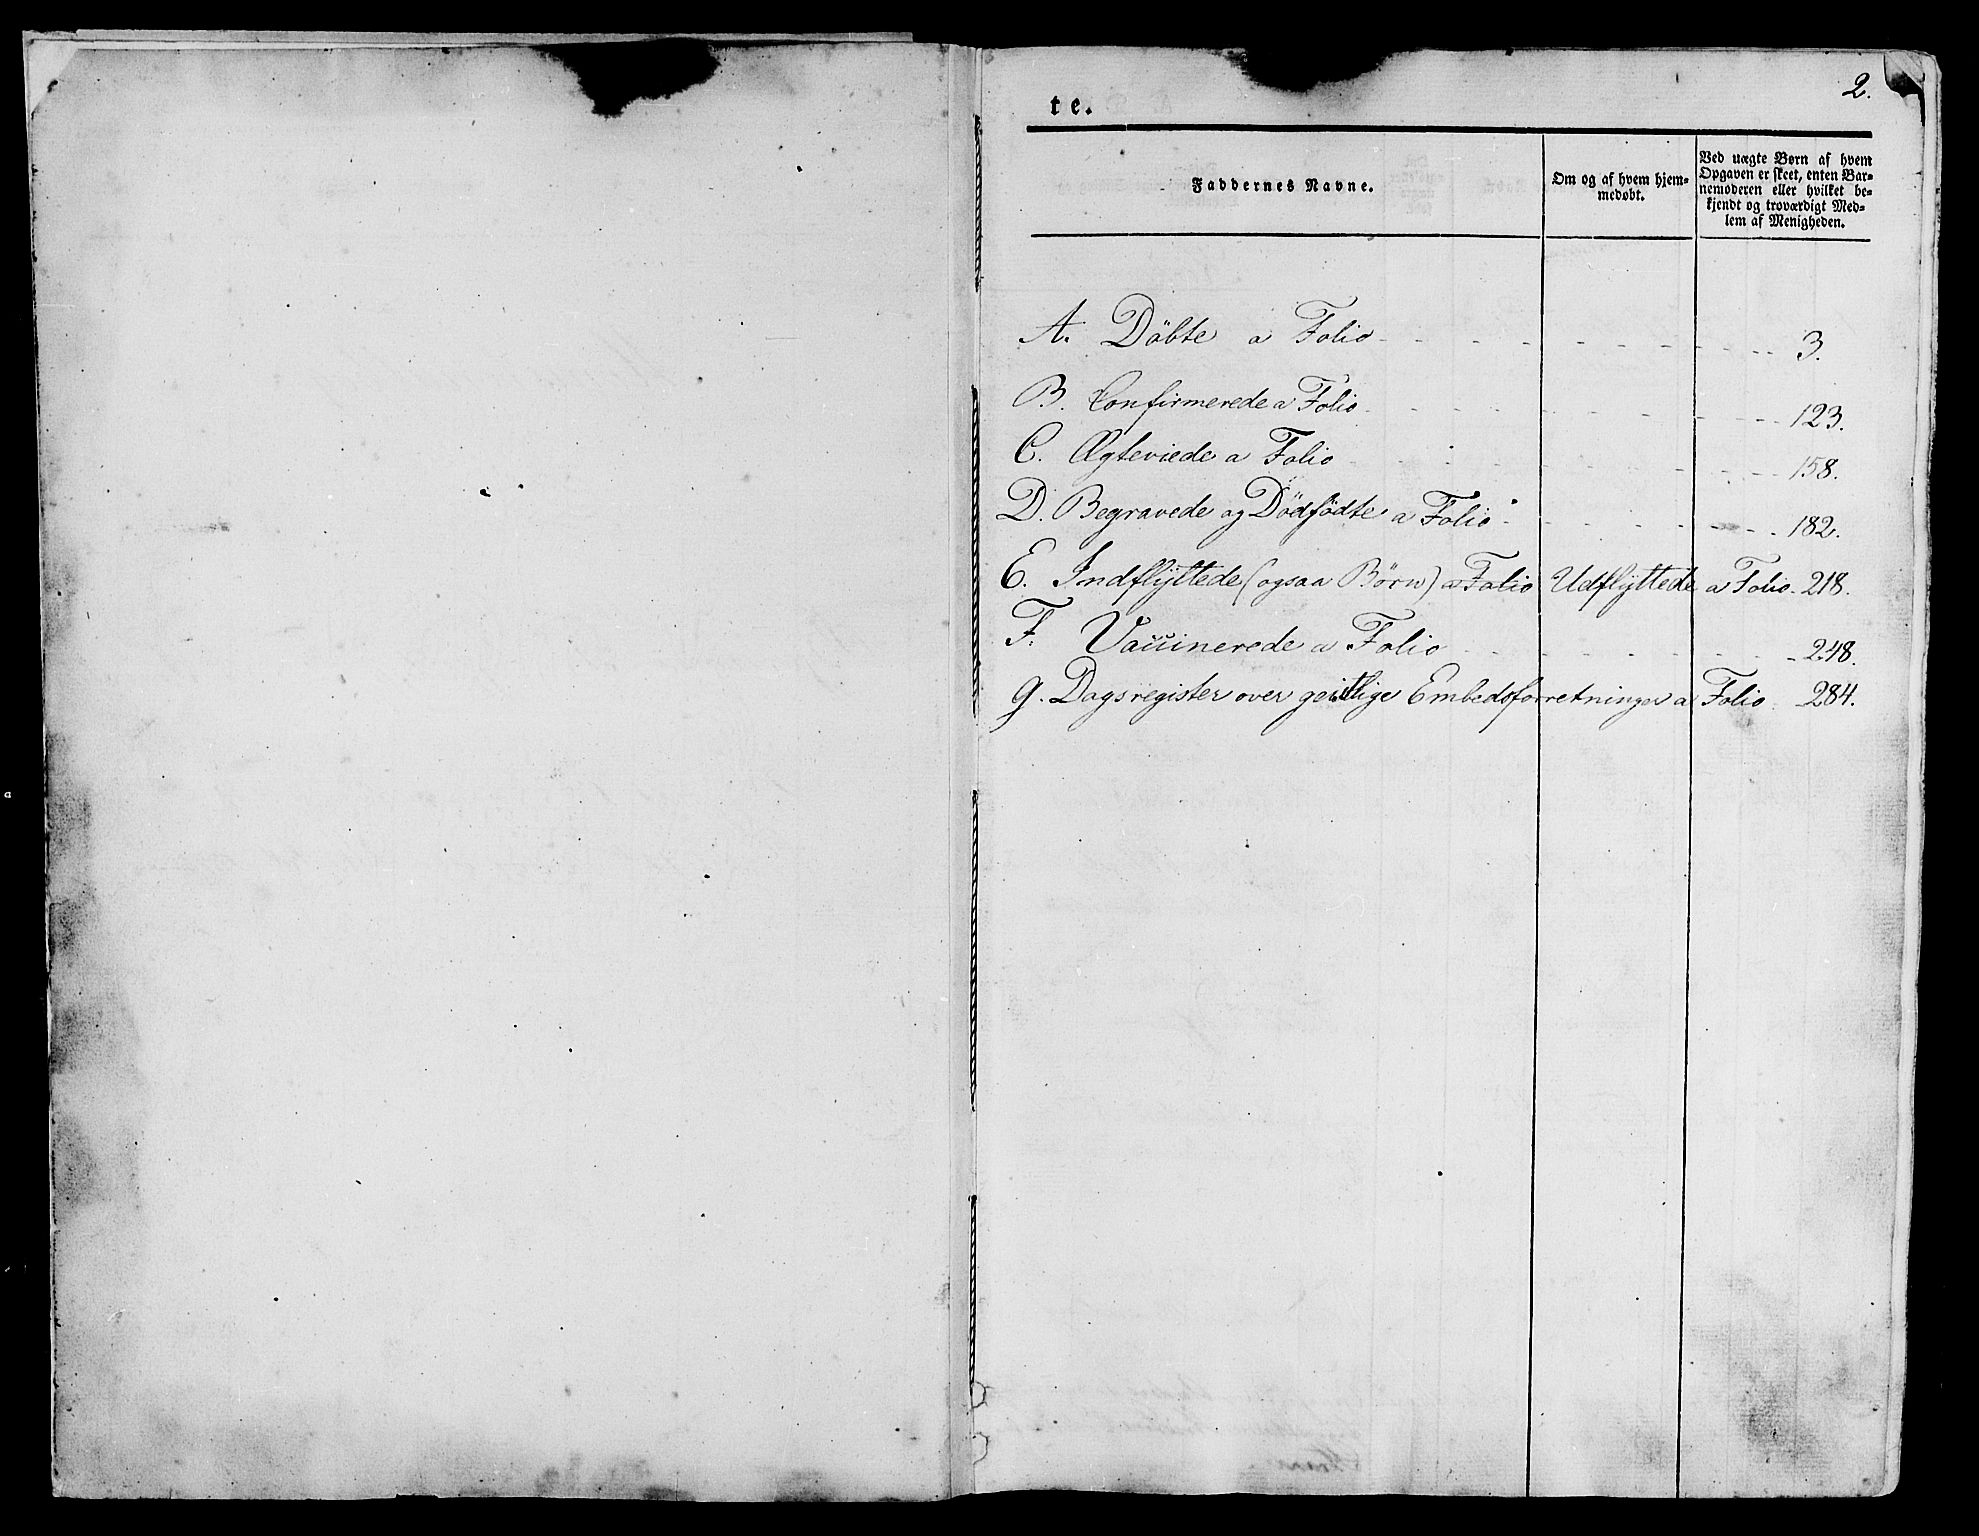 2.
te.
Faddernes Navne.
Om og af hvem hjem-
medøbt.
Ved uægte Børn af hvem
Opgaven er skeet, enten Bar-
nemoderen eller hvilket be-
kjendt og troværdigt Med-
lem af Menigheden.
A. Döbte a Folio - - - - - - 3.
B. Confirmerede a Folio - - - - - - 123.
C. Ægteviede a Folio - - - - - - 158.
D. Begravede og Dödfödte a Folio - - - - - - 182.
E. Indflÿttede (ogsaa Börn) a Folio Udflÿttede a Folio - 218.
F. Vaccinerede a Folio - - - - - - 248.
G. Dagsregister over geistlige Embedsforretninger a Folio - 284.